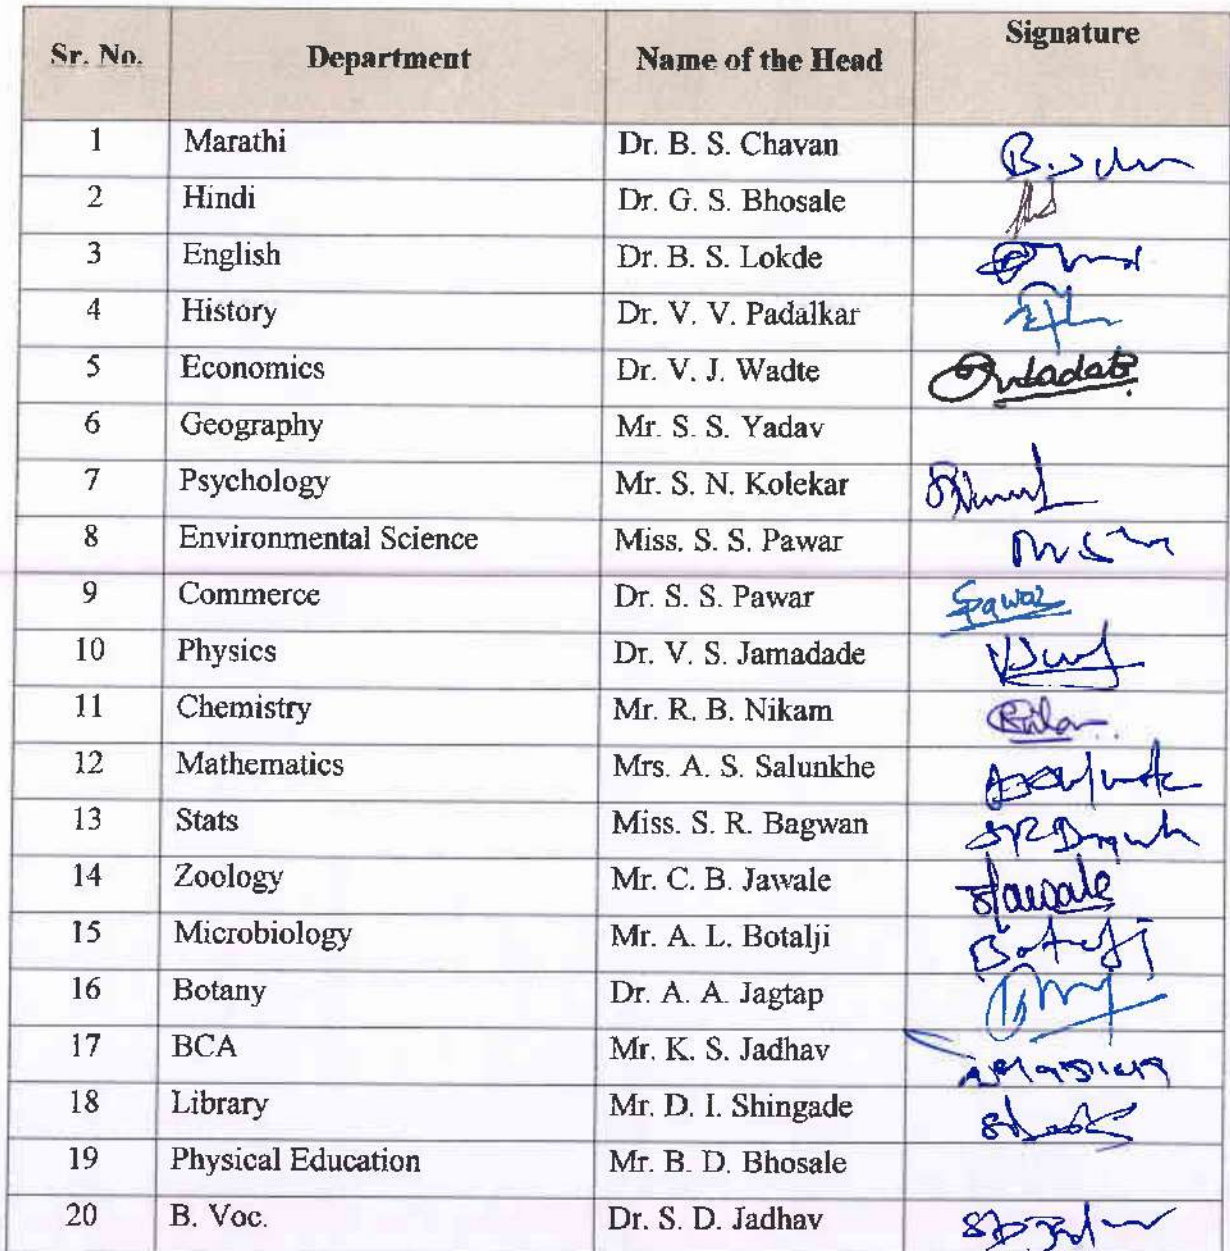 Sr. No. Department Name of the Head Signature
1 Marathi Dr. B. S. Chavan
2 Hindi Dr. G. S. Bhosale
3 English Dr. B. S. Lokde
4 History Dr. V. V. Padalkar
5 Economics Dr. V. J. Wadte
6 Geography Mr. S. S. Yadav
7 Psychology Mr. S. N. Kolekar
8 Environmental Science Miss. S. S. Pawar
9 Commerce Dr. S. S. Pawar Spawar
10 Physics Dr. V. S. Jamadade
11 Chemistry Mr. R. B. Nikam
12 Mathematics Mrs. A. S. Salunkhe
13 Stats Miss. S. R. Bagwan
14 Zoology Mr. C. B. Jawale
15 Microbiology Mr. A. L. Botalji
16 Botany Dr. A. A. Jagtap
17 BCA Mr. K. S. Jadhav
18 Library Mr. D. I. Shingade
19 Physical Education Mr. B. D. Bhosale
20 B. Voc. Dr. S. D. Jadhav